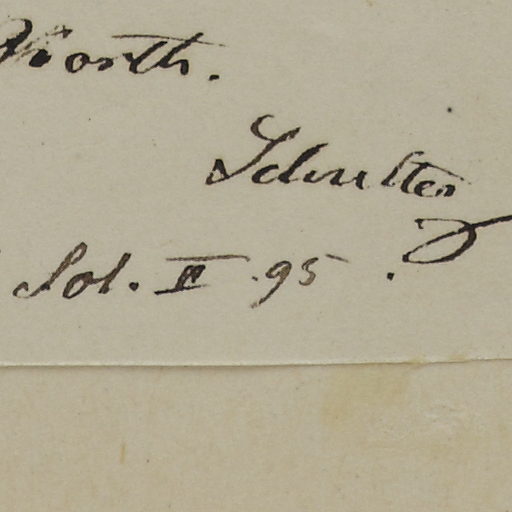 North.
Schulter
Sol. II. 95.